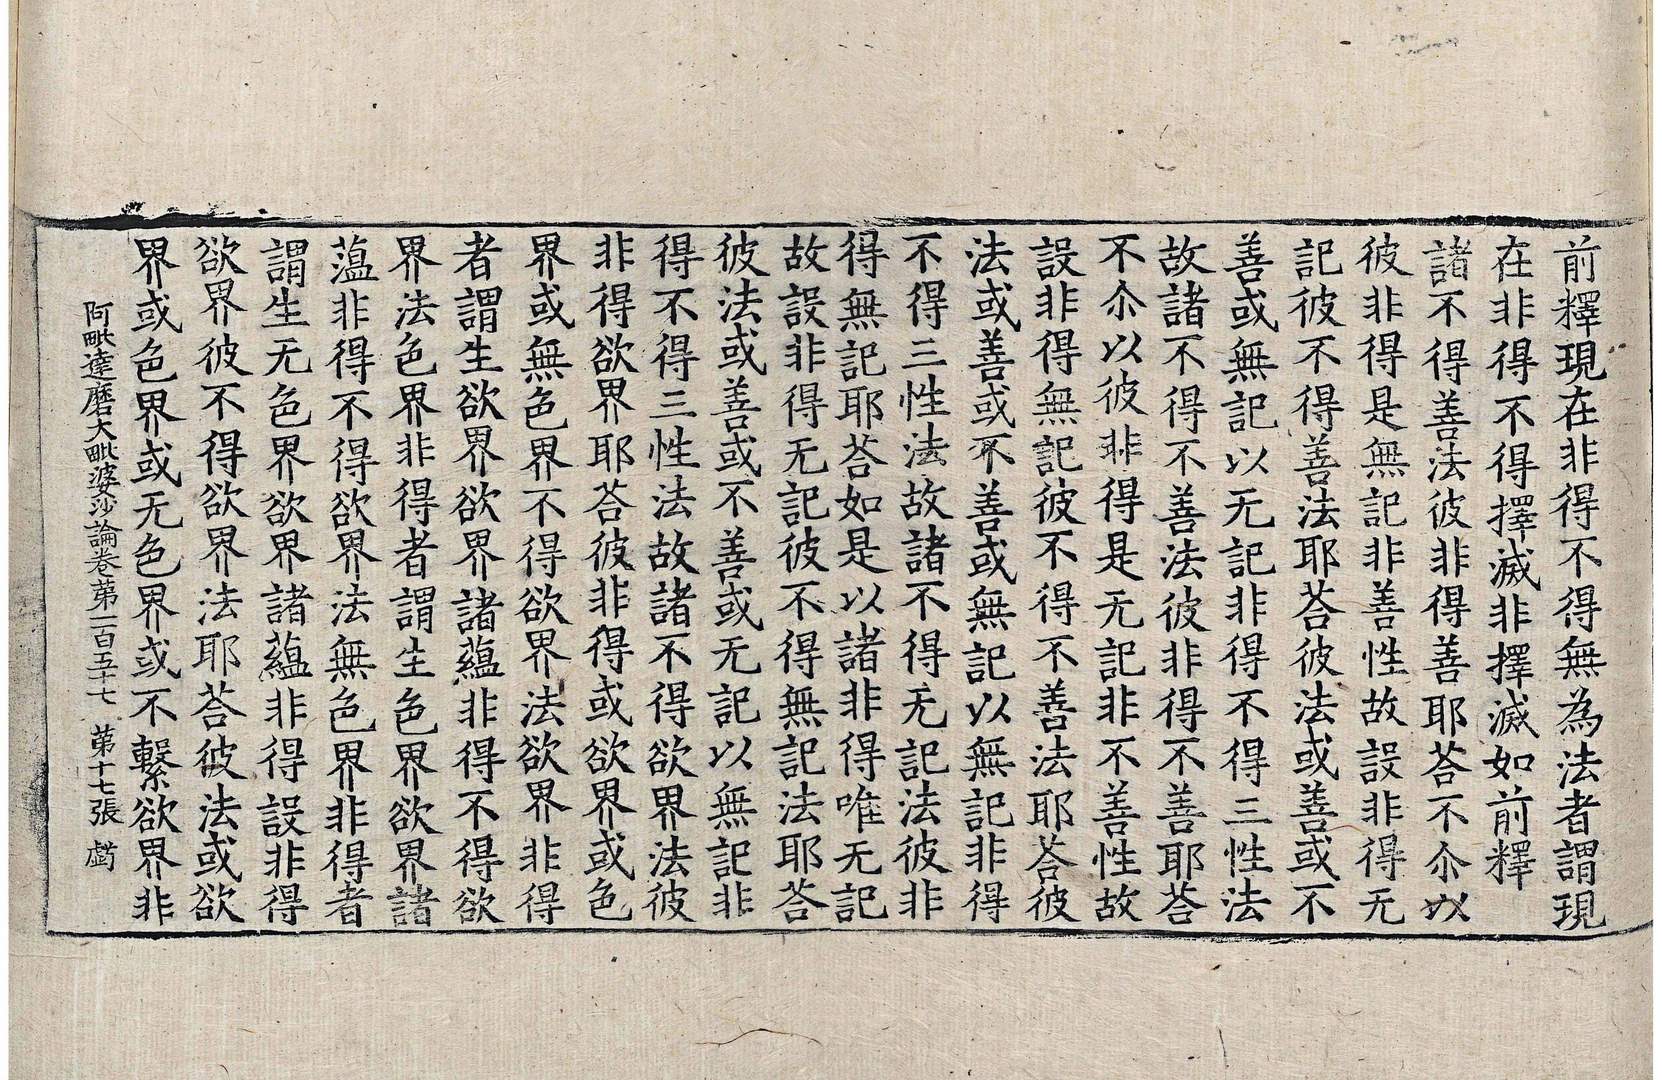 前釋現在非得不得無為法者謂現
在非得不得擇滅非擇滅如前釋
諸不得善法彼非得善耶荅不尒以
彼非得是無記非善性故設非得无
記彼不得善法耶荅彼法或善或不
善或無記以无記非得不得三性法
故諸不得不善法彼非得不善耶荅
不尒以彼非得是无記非不善性故
設非得無記彼不得不善法耶荅彼
法或善或不善或無記以無記非得
不得三性法故諸不得无記法彼非
得無記耶荅如是以諸非得唯无記
故設非得无記彼不得無記法耶荅
彼法或善或不善或无記以無記非
得不得三性法故諸不得欲界法彼
非得欲界耶荅彼非得或欲界或色
界或無色界不得欲界法欲界非得
者謂生欲界欲界諸蘊非得不得欲
界法色界非得者謂生色界欲界諸
薀非得不得欲界法無色界非得者
謂生无色界欲界諸蘊非得設非得
欲界彼不得欲界法耶荅彼法或欲
界或色界或无色界或不繫欲界非
阿毗達磨大毗婆沙論卷苐一百五十七 苐十七張